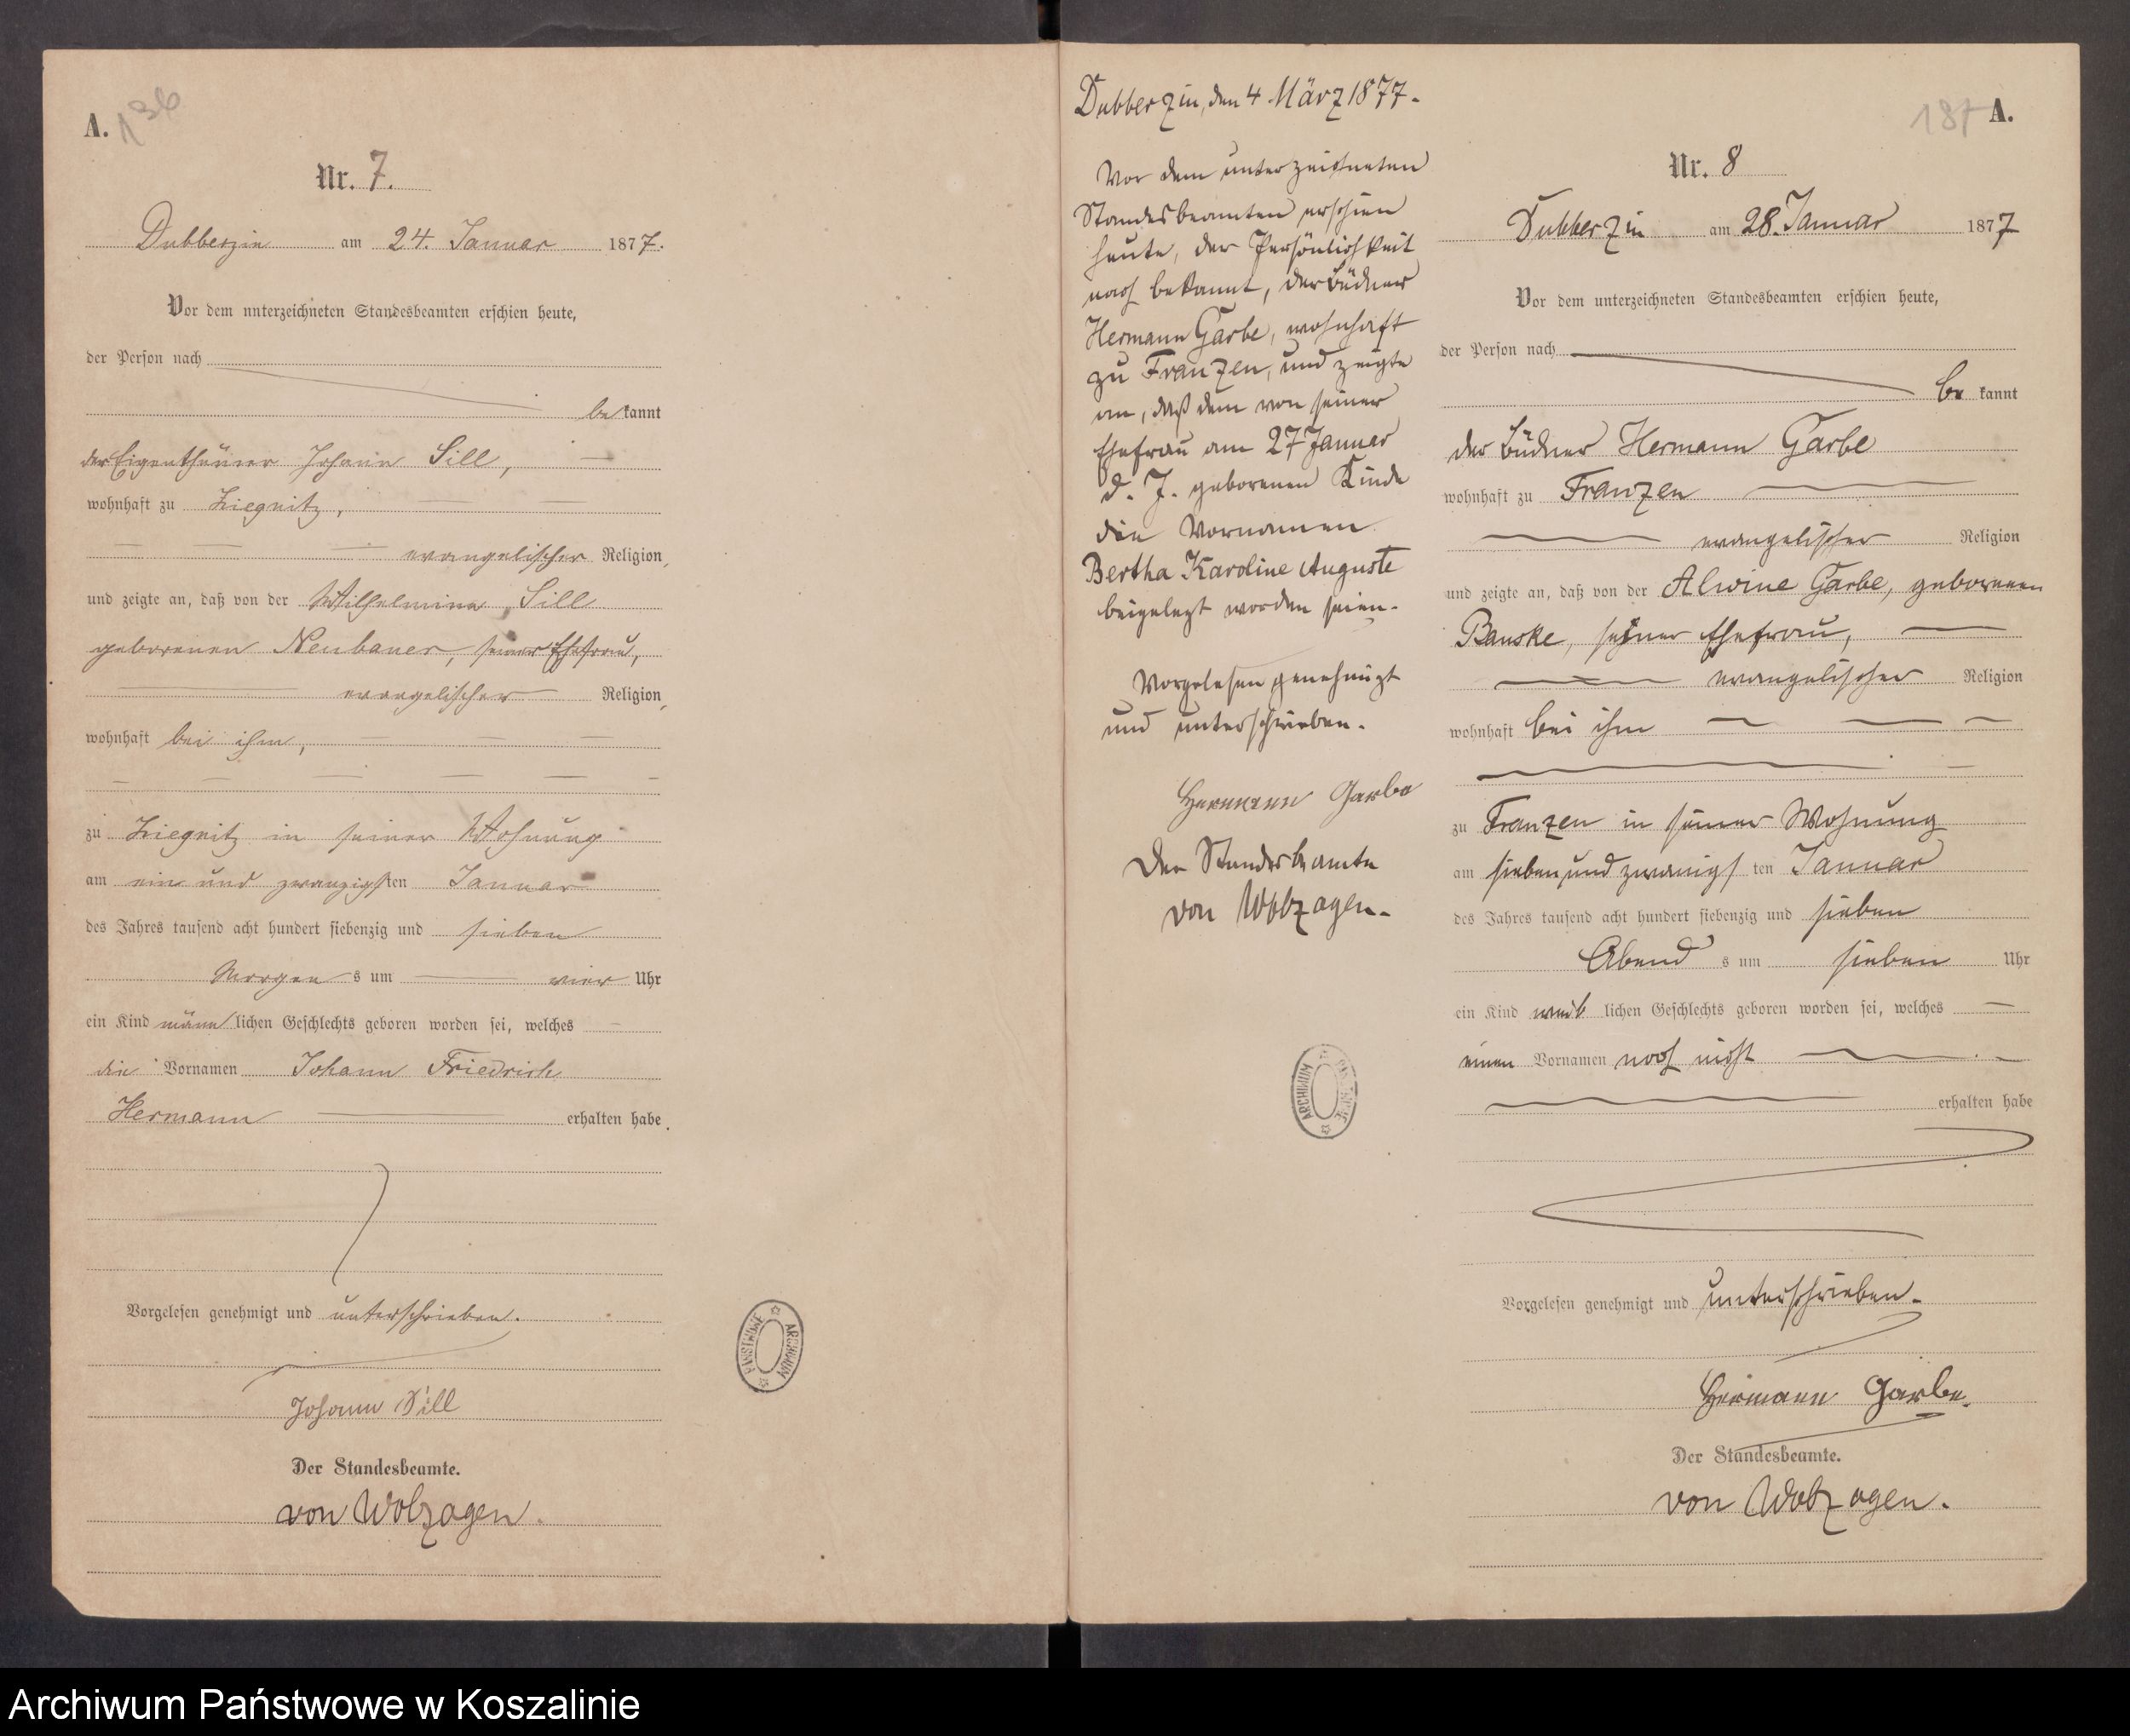 A.
136
Nr. 7.
Dubberzin am 24. Januar 1877.
Vor dem unterzeichneten Standesbeamten erschien heute,
der Person nach
be kannt
der Eigenthümer Johann Sill,
wohnhaft zu Liegnitz,
evangelischer Religion,
und zeigte an, daß von der Wilhelmine Sill
geborenen Neubauer, seiner Ehefrau,
evangelischer Religion,
wohnhaft bei ihm,
zu Liegnitz in seiner Wohnung
am ein und zwanzigsten Januar
des Jahres tausend acht hundert siebenzig und sieben
Morgen s um vier Uhr
ein Kind männ lichen Geschlechts geboren worden sei, welches
die Vornamen Johann Friedrich
Hermann erhalten habe.
Vorgelesen genehmigt und unterschrieben.
Johann Sill
Der Standesbeamte.
von Wolzogen.
ARCHIWUM PAŃSTWOWE
Dubberzin, den 4 März 1877.
Vor dem unterzeichneten
Standesbeamten erschien
heute, der Persönlichkeit
nach bekannt, der Büdner
Hermann Garbe, wohnhaft
zu Franzen, und zeigte
an, daß dem von seiner
Ehefrau am 27 Januar
d. J. geborenen Kinde
die Vornamen
Bertha Karoline Auguste
beigelegt worden seien.
Vorgelesen genehmigt
und unterschrieben.
Hermann Garbe
Der Standesbeamte
von Wolzogen.
ARCHIWUM PAŃSTWOWE
187 A.
Nr. 8
Dubberzin am 28. Januar 1877
Vor dem unterzeichneten Standesbeamten erschien heute,
der Person nach
be kannt
der Büdner Hermann Garbe
wohnhaft zu Franzen
evangelischer Religion
und zeigte an, daß von der Alwine Garbe, geborenen
Banske, seiner Ehefrau,
evangelischer Religion
wohnhaft bei ihm
zu Franzen in seiner Wohnung
am sieben und zwanzigs ten Januar
des Jahres tausend acht hundert siebenzig und sieben
Abend s um sieben Uhr
ein Kind weib lichen Geschlechts geboren worden sei, welches
einen Vornamen noch nicht
erhalten habe
Vorgelesen genehmigt und unterschrieben.
Hermann Garbe.
Der Standesbeamte.
von Wolzogen.
Archiwum Państwowe w Koszalinie